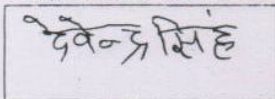 देवेन्द्र सिंह